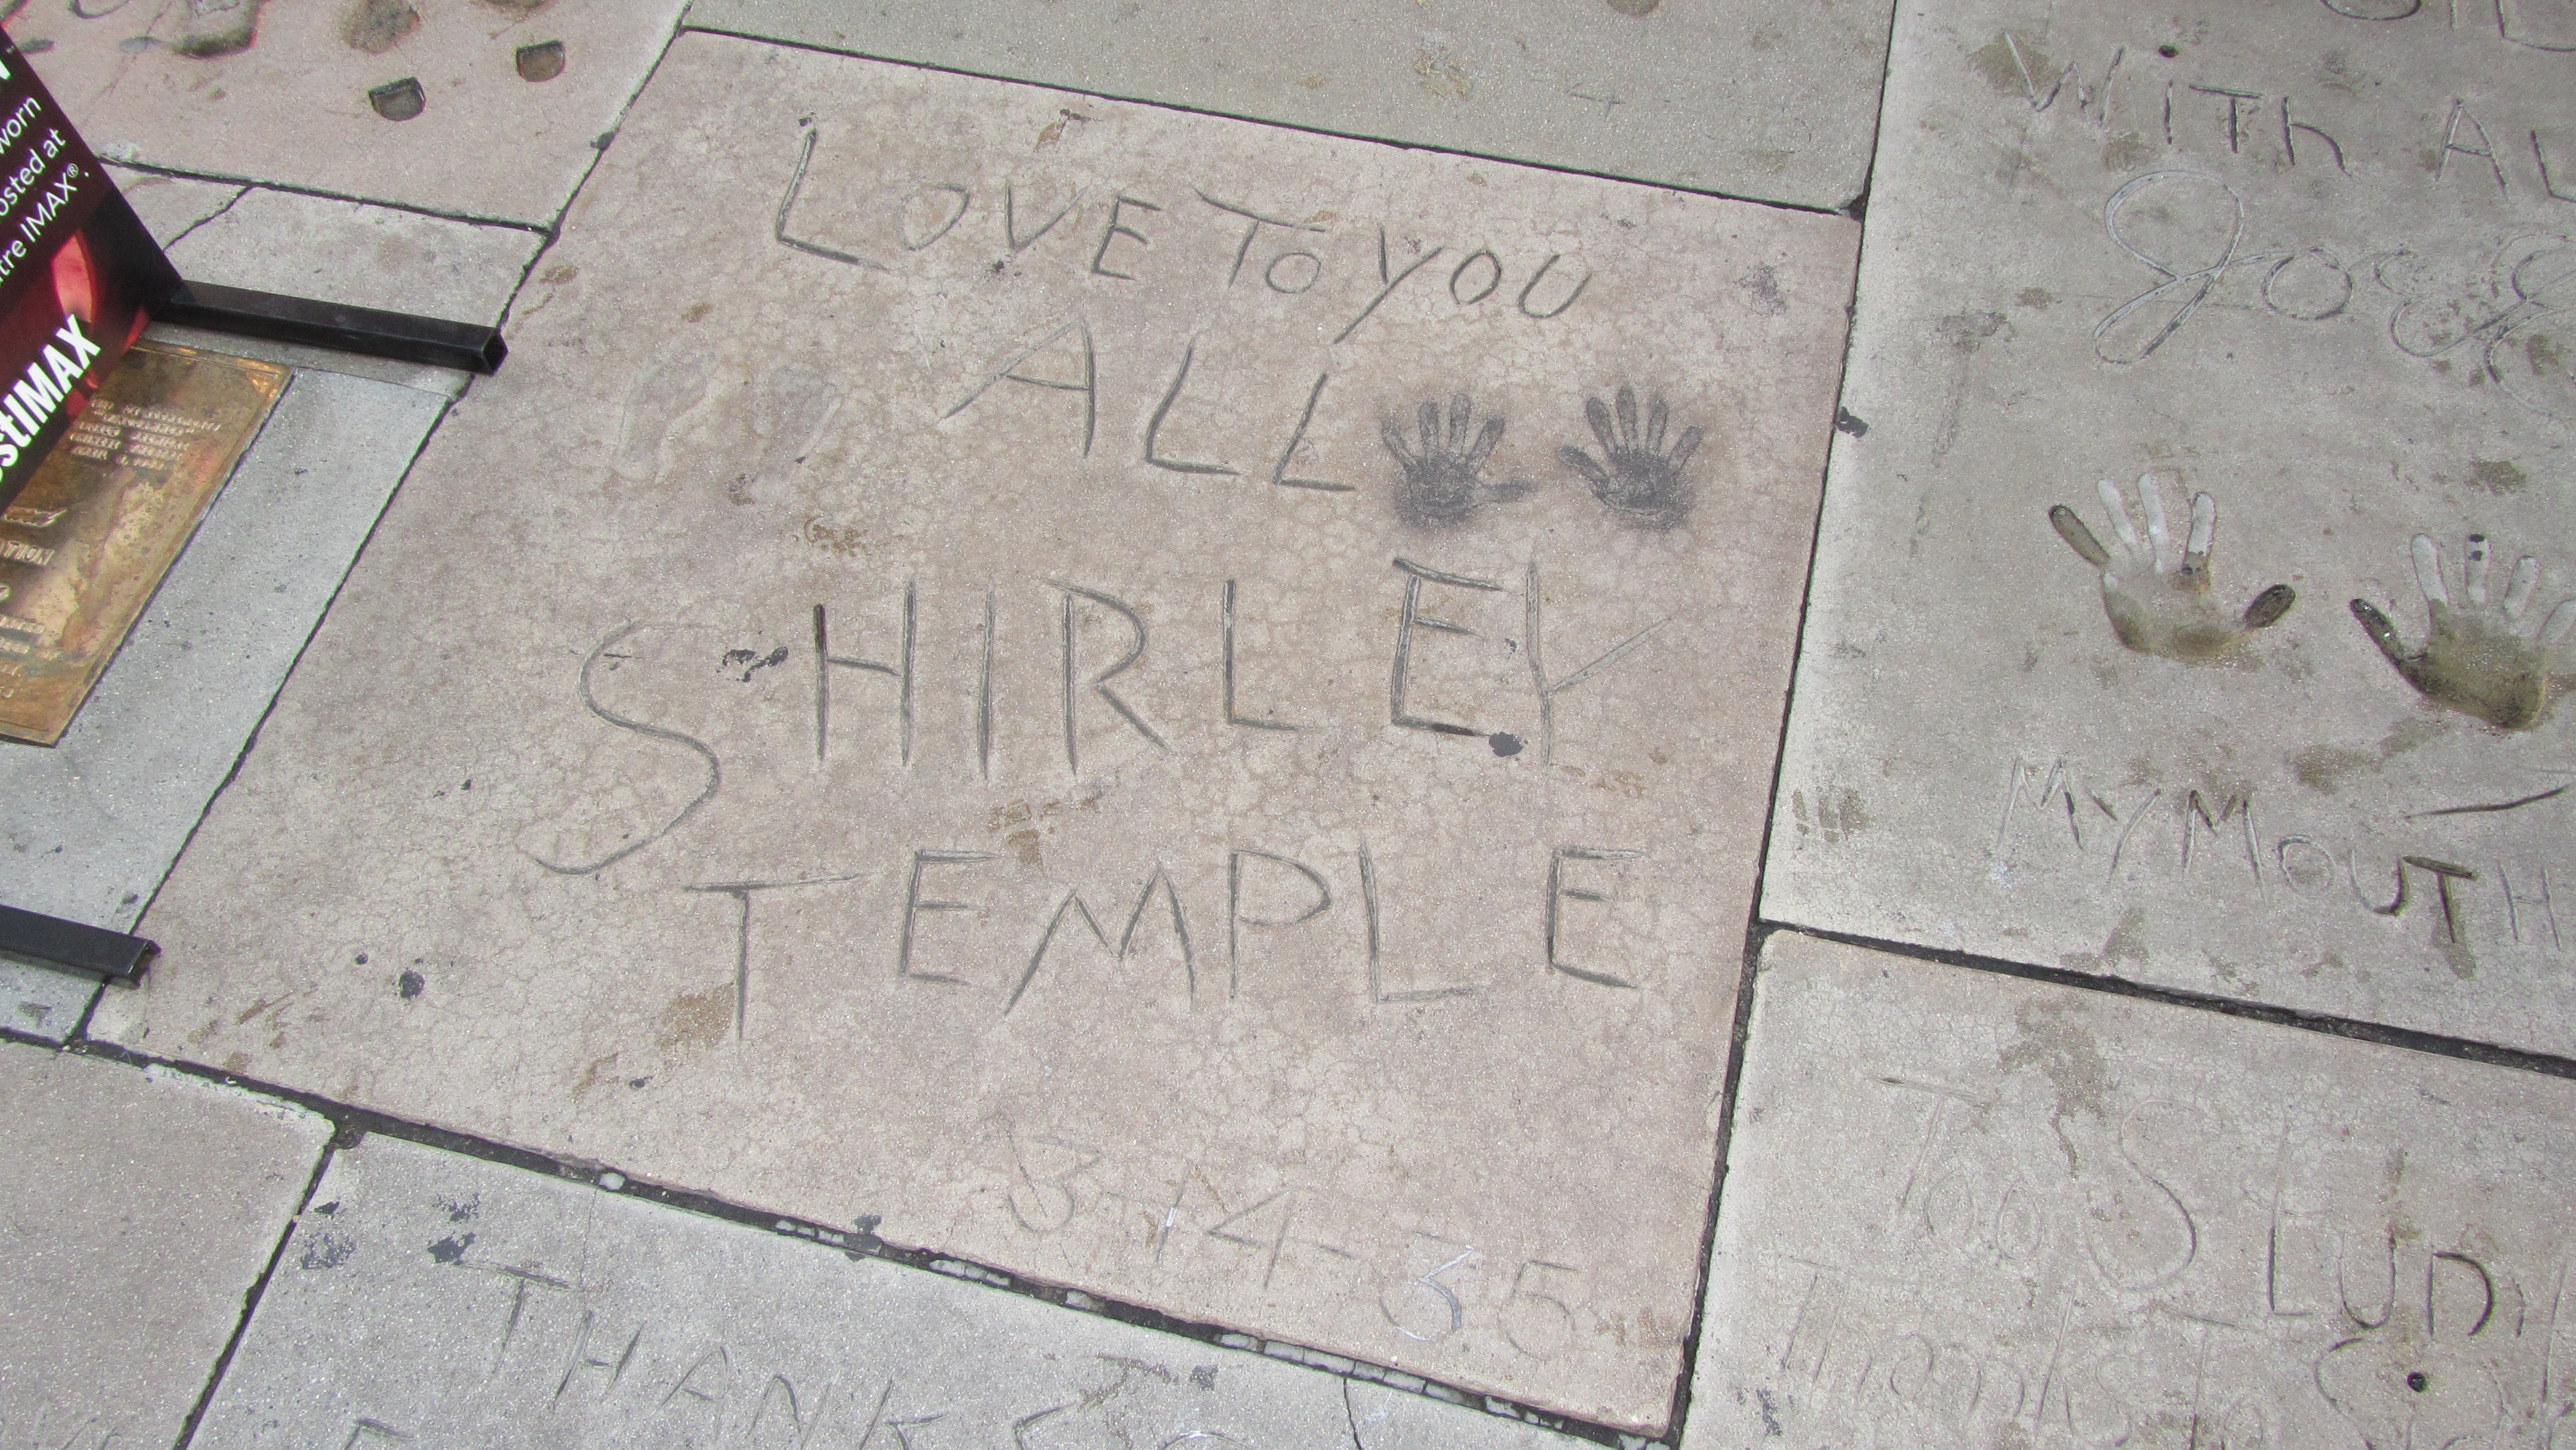 LOVE TO YOU
ALL
SHIRLEY
TEMPLE
3-14-35
worn
osted at
tre IMAX®.
stIMAX
WITH AL
MY MOUTH
THANKS
TOO
Thanks To